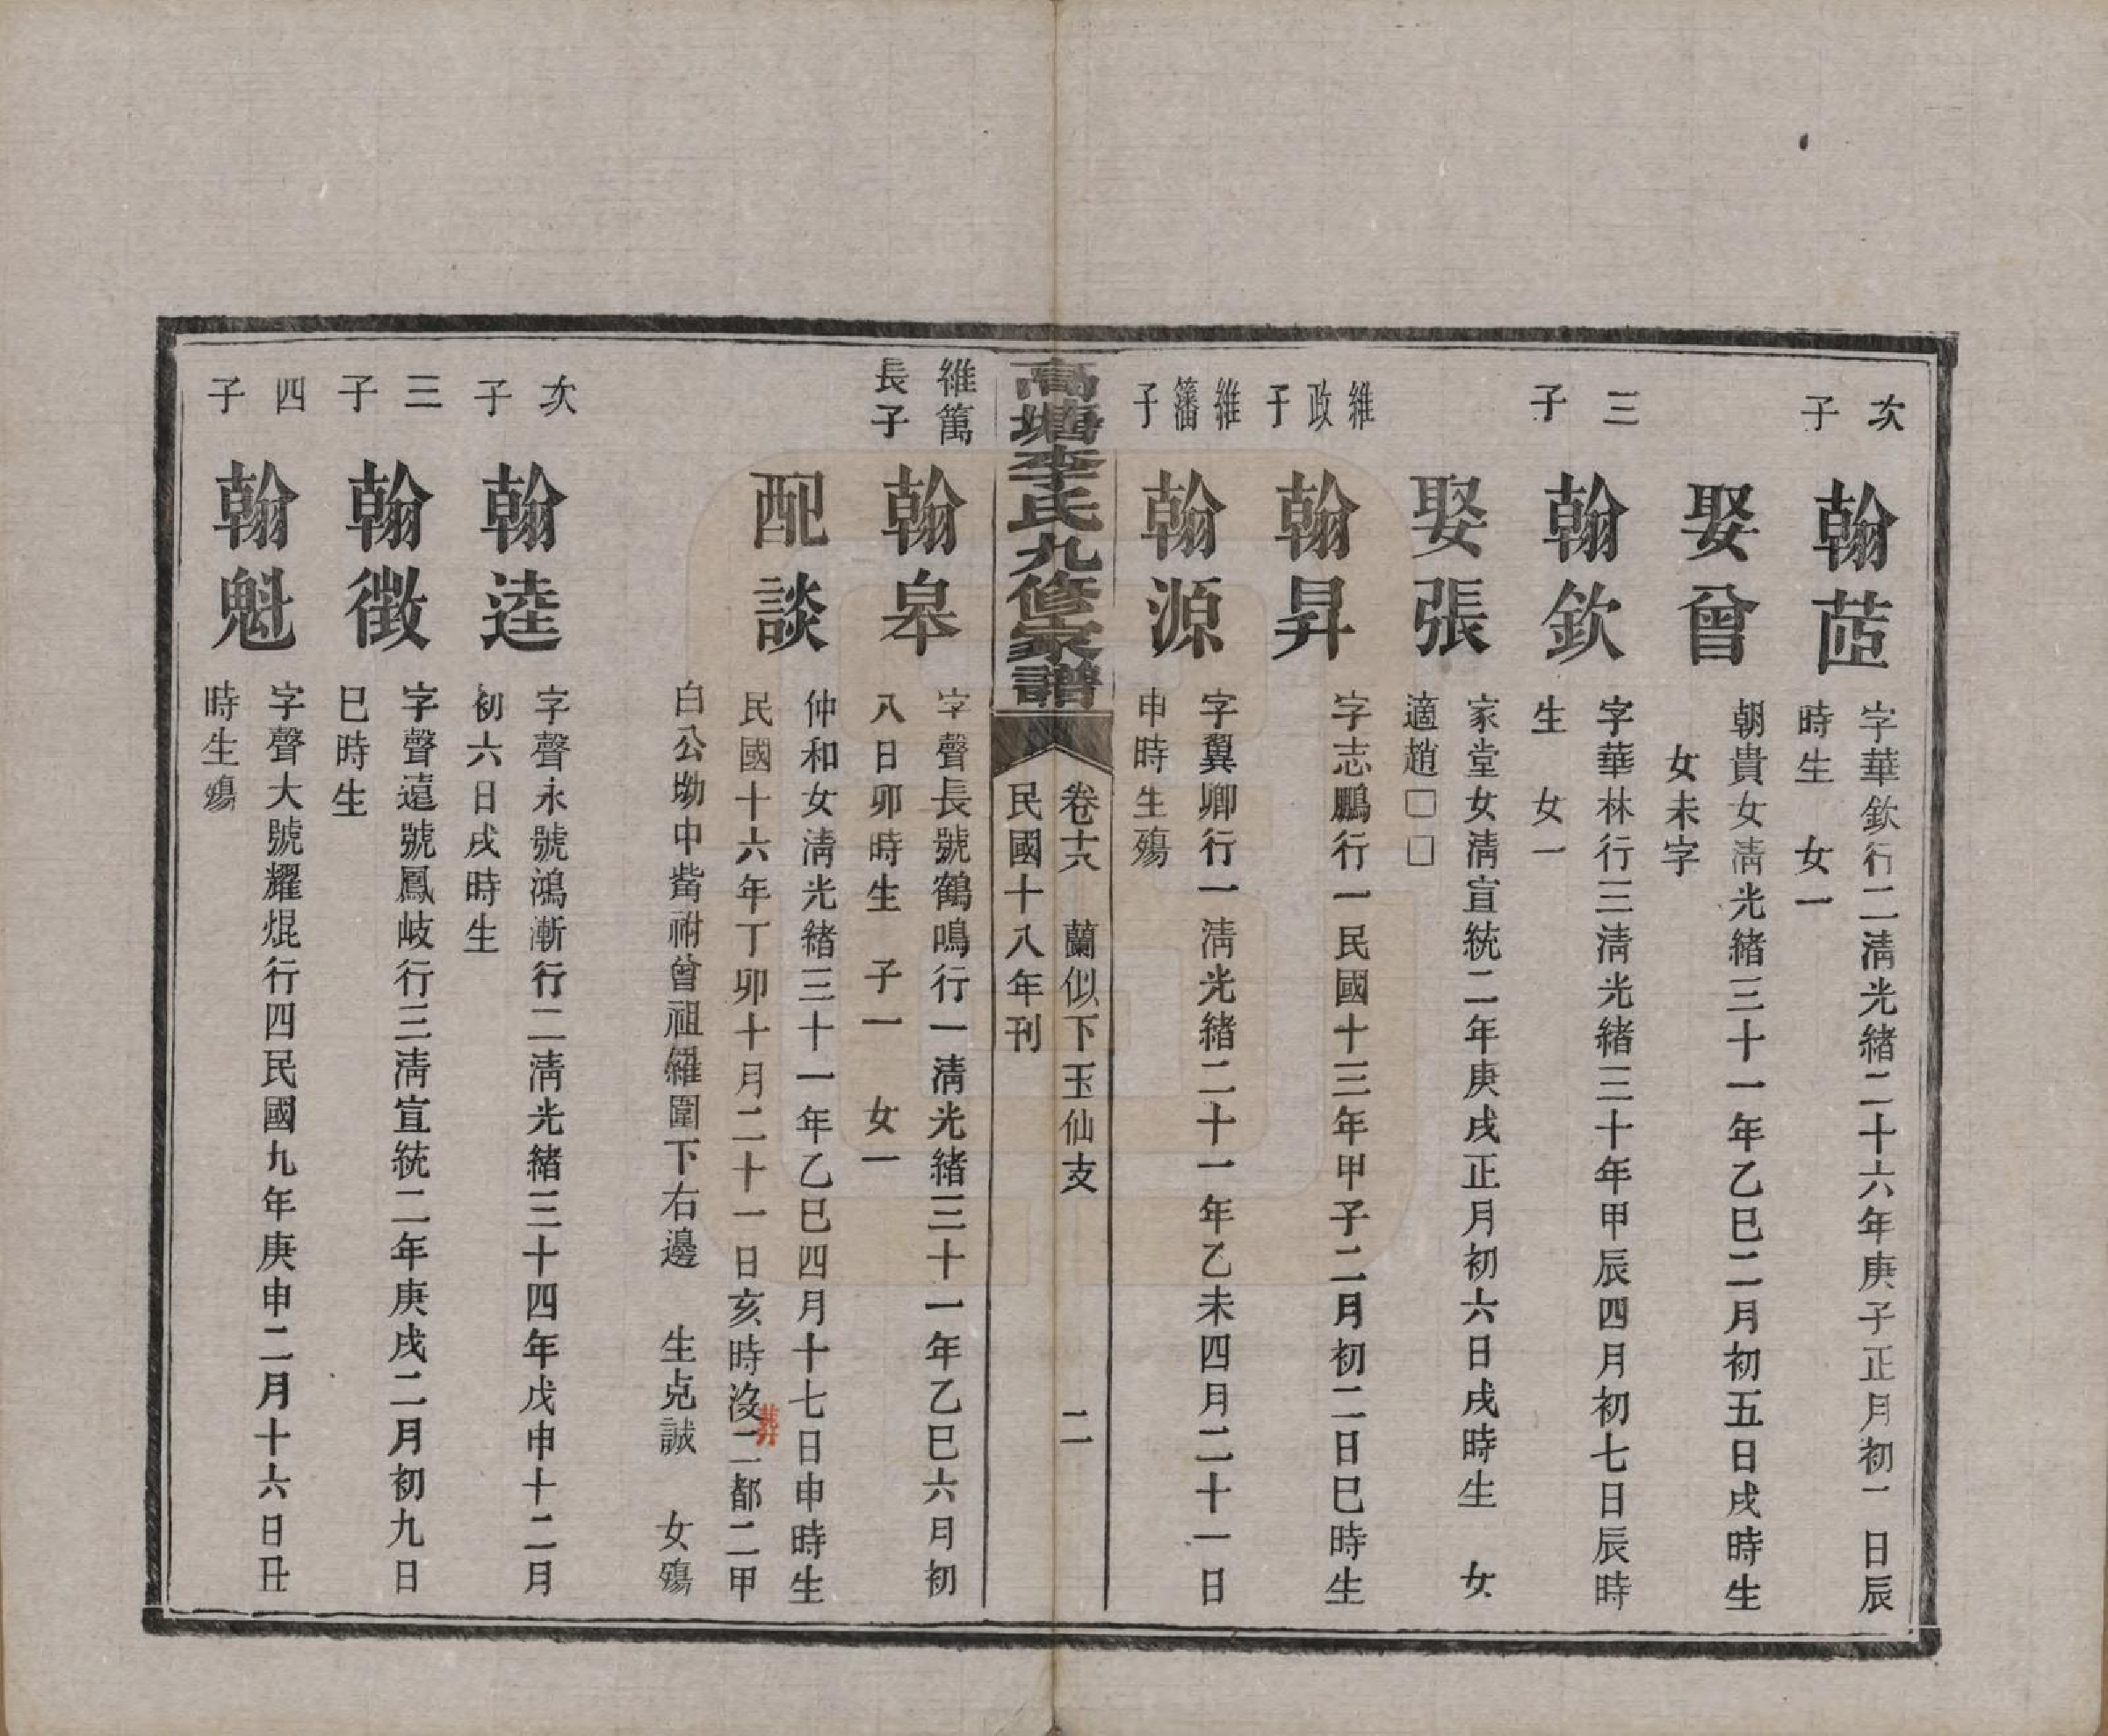 次子
翰茝
字華欽行二淸光緒二十六年庚子正月初一日辰
時生　女一
娶曾
朝貴女淸光緒三十一年乙巳二月初五日戌時生
女未字
三子
翰欽
字華林行三淸光緒三十年甲辰四月初七日辰時
生　女一
娶張
家堂女淸宣統二年庚戌正月初六日戌時生　女
適趙□□
維政子
翰昇
字志鵬行一民國十三年甲子二月初二日巳時生
維藩子
翰源
字翼卿行一淸光緒二十一年乙未四月二十一日
申時生殤
高塘李氏九修家譜
卷十六　蘭似下玉仙支　二
民國十八年刊
維萬長子
翰皋
字聲長號鶴鳴行一淸光緒三十一年乙巳六月初
八日卯時生　子一　女一
配談
仲和女淸光緒三十一年乙巳四月十七日申時生
民國十六年丁卯十月二十一日亥時沒葬二都二甲
白公坳中觜祔曾祖羅圍下右邊　生克誠　女殤
次子
翰逵
字聲永號鴻漸行二淸光緒三十四年戊申十二月
初六日戌時生
三子
翰徵
字聲遠號鳳岐行三淸宣統二年庚戌二月初九日
巳時生
四子
翰魁
字聲大號耀焜行四民國九年庚申二月十六日丑
時生殤